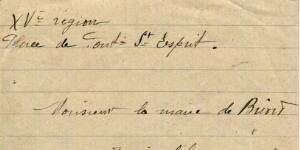 XVe région
Place de Pont St Esprit.
Monsieur le maire de